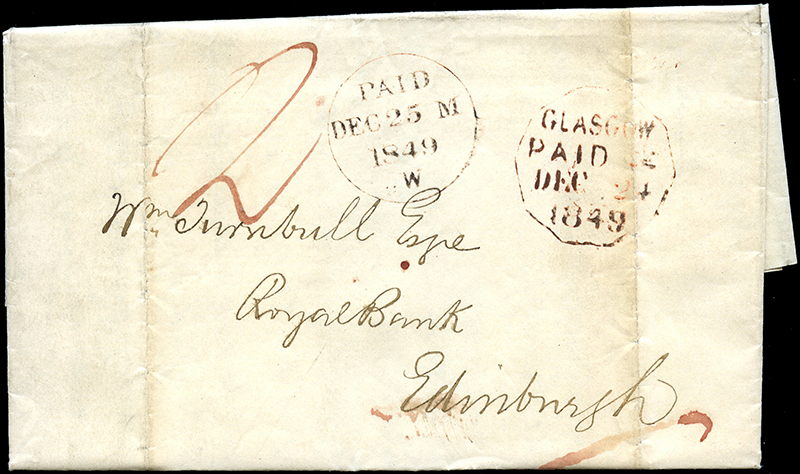 2
PAID
DEC 25 M
1849
W
GLASGOW
PAID
DEC 24
1849
Wm Turnbull Esqe
Royal Bank
Edinburgh